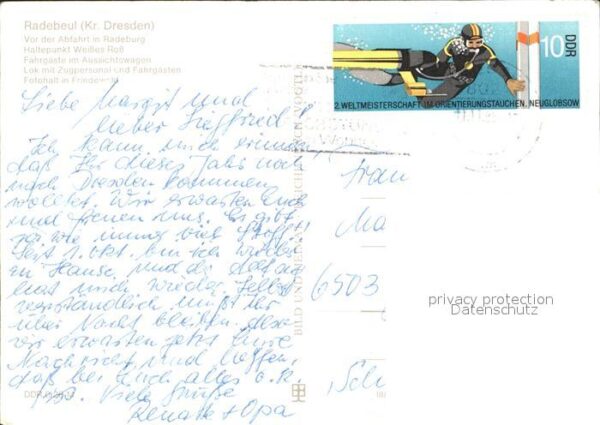 Radebeul (Kr. Dresden)
Vor der Abfahrt in Radeburg
Haltepunkt Weißes Roß
Fahrgäste im Aussichtswagen
Lok mit Zugpersonal und Fahrgästen
Fotohalt in Friedewald
10
DDR
2. WELTMEISTERSCHAFT IM ORIENTIERUNGSTAUCHEN, NEUGLOBSOW
Liebe Margit und
lieber Siegfried!
Ich kann mich erinnern
daß Ihr dieses Jahr noch
nach Dresden kommen
wolltet. Wir erwarten Euch
und freuen uns. Es gibt
ja wie immer viel Stoff!
Seit 1. Okt. bin ich wieder
zu Hause, und der Alltag
hat mich wieder. Selbst
verständlich müßt Ihr
über Nacht bleiben. Also
wir erwarten jetzt Eure
Nachricht und hoffen,
daß bei Euch alles o.k.
ist. Viele Grüße
Renate + Opa
BILD UND HEIMAT REICHENBACH (VOGTL)
Frau
Ma
6503
Sch
privacy protection
Datenschutz
DDR